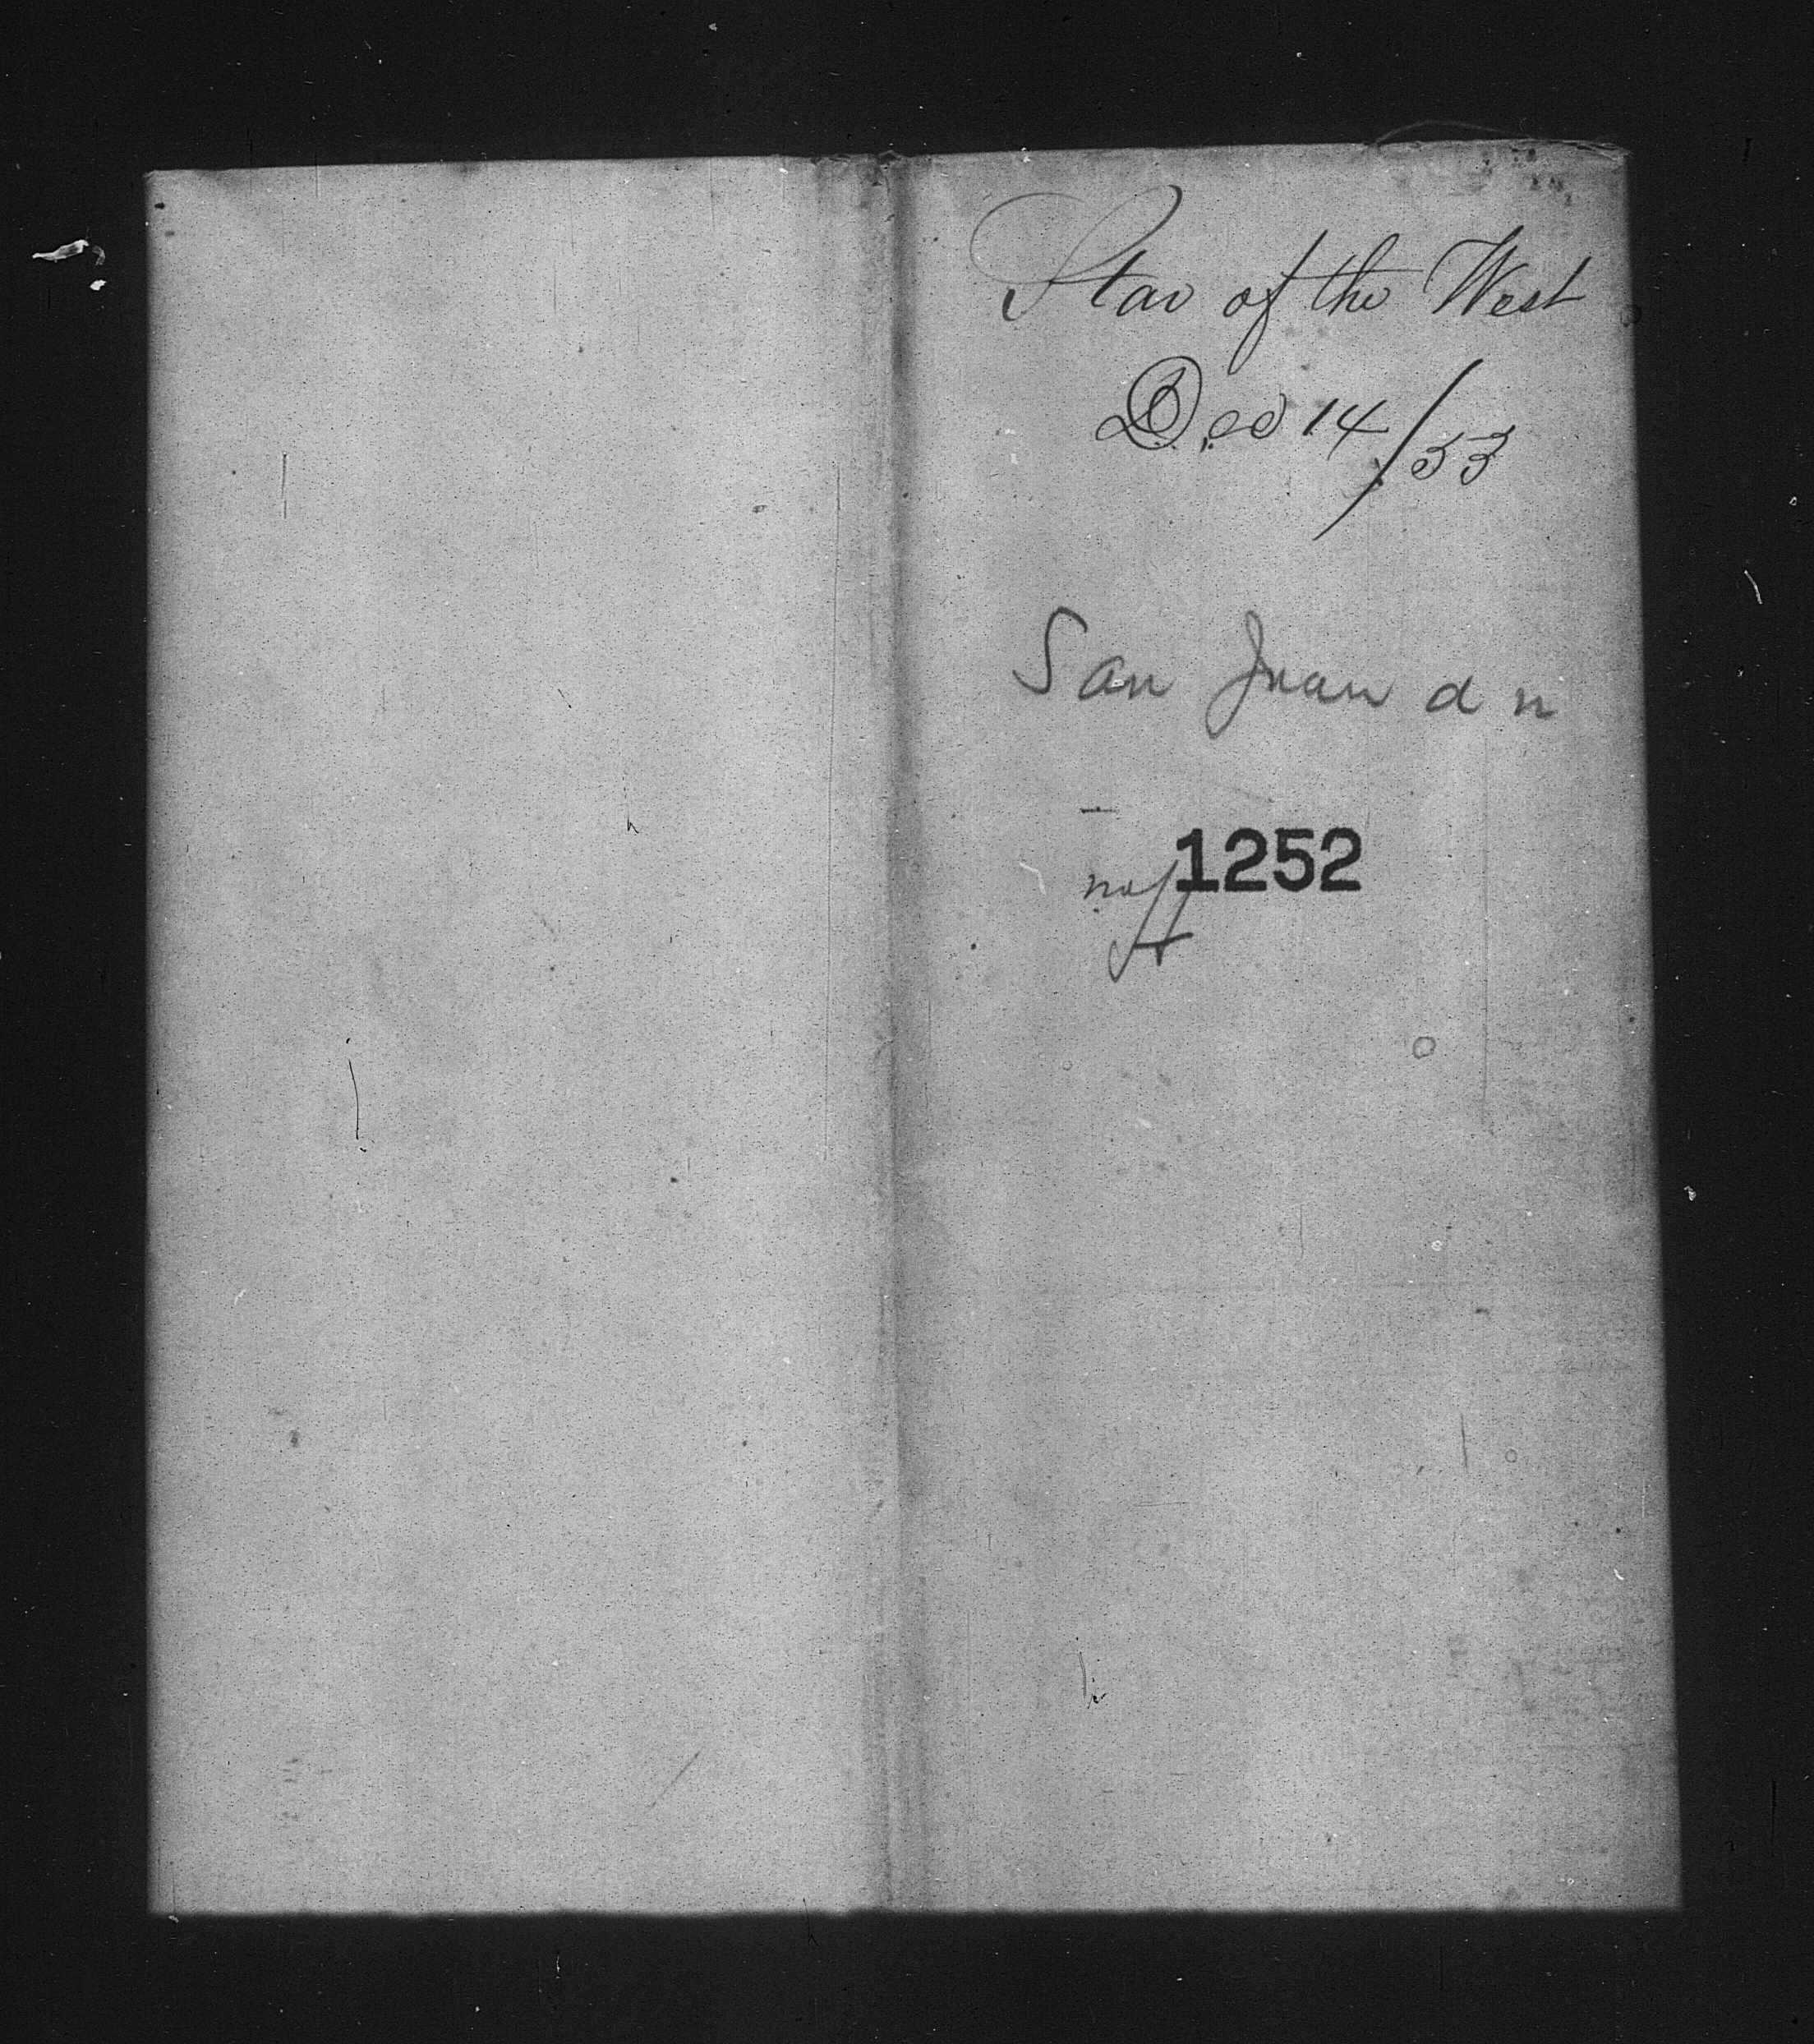 Star of the West
Dec 14/53
San Juan d n
1252